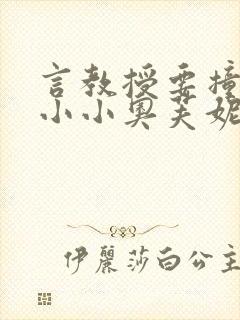 言教授要撞
小小奥芙妮
伊麗莎白公主